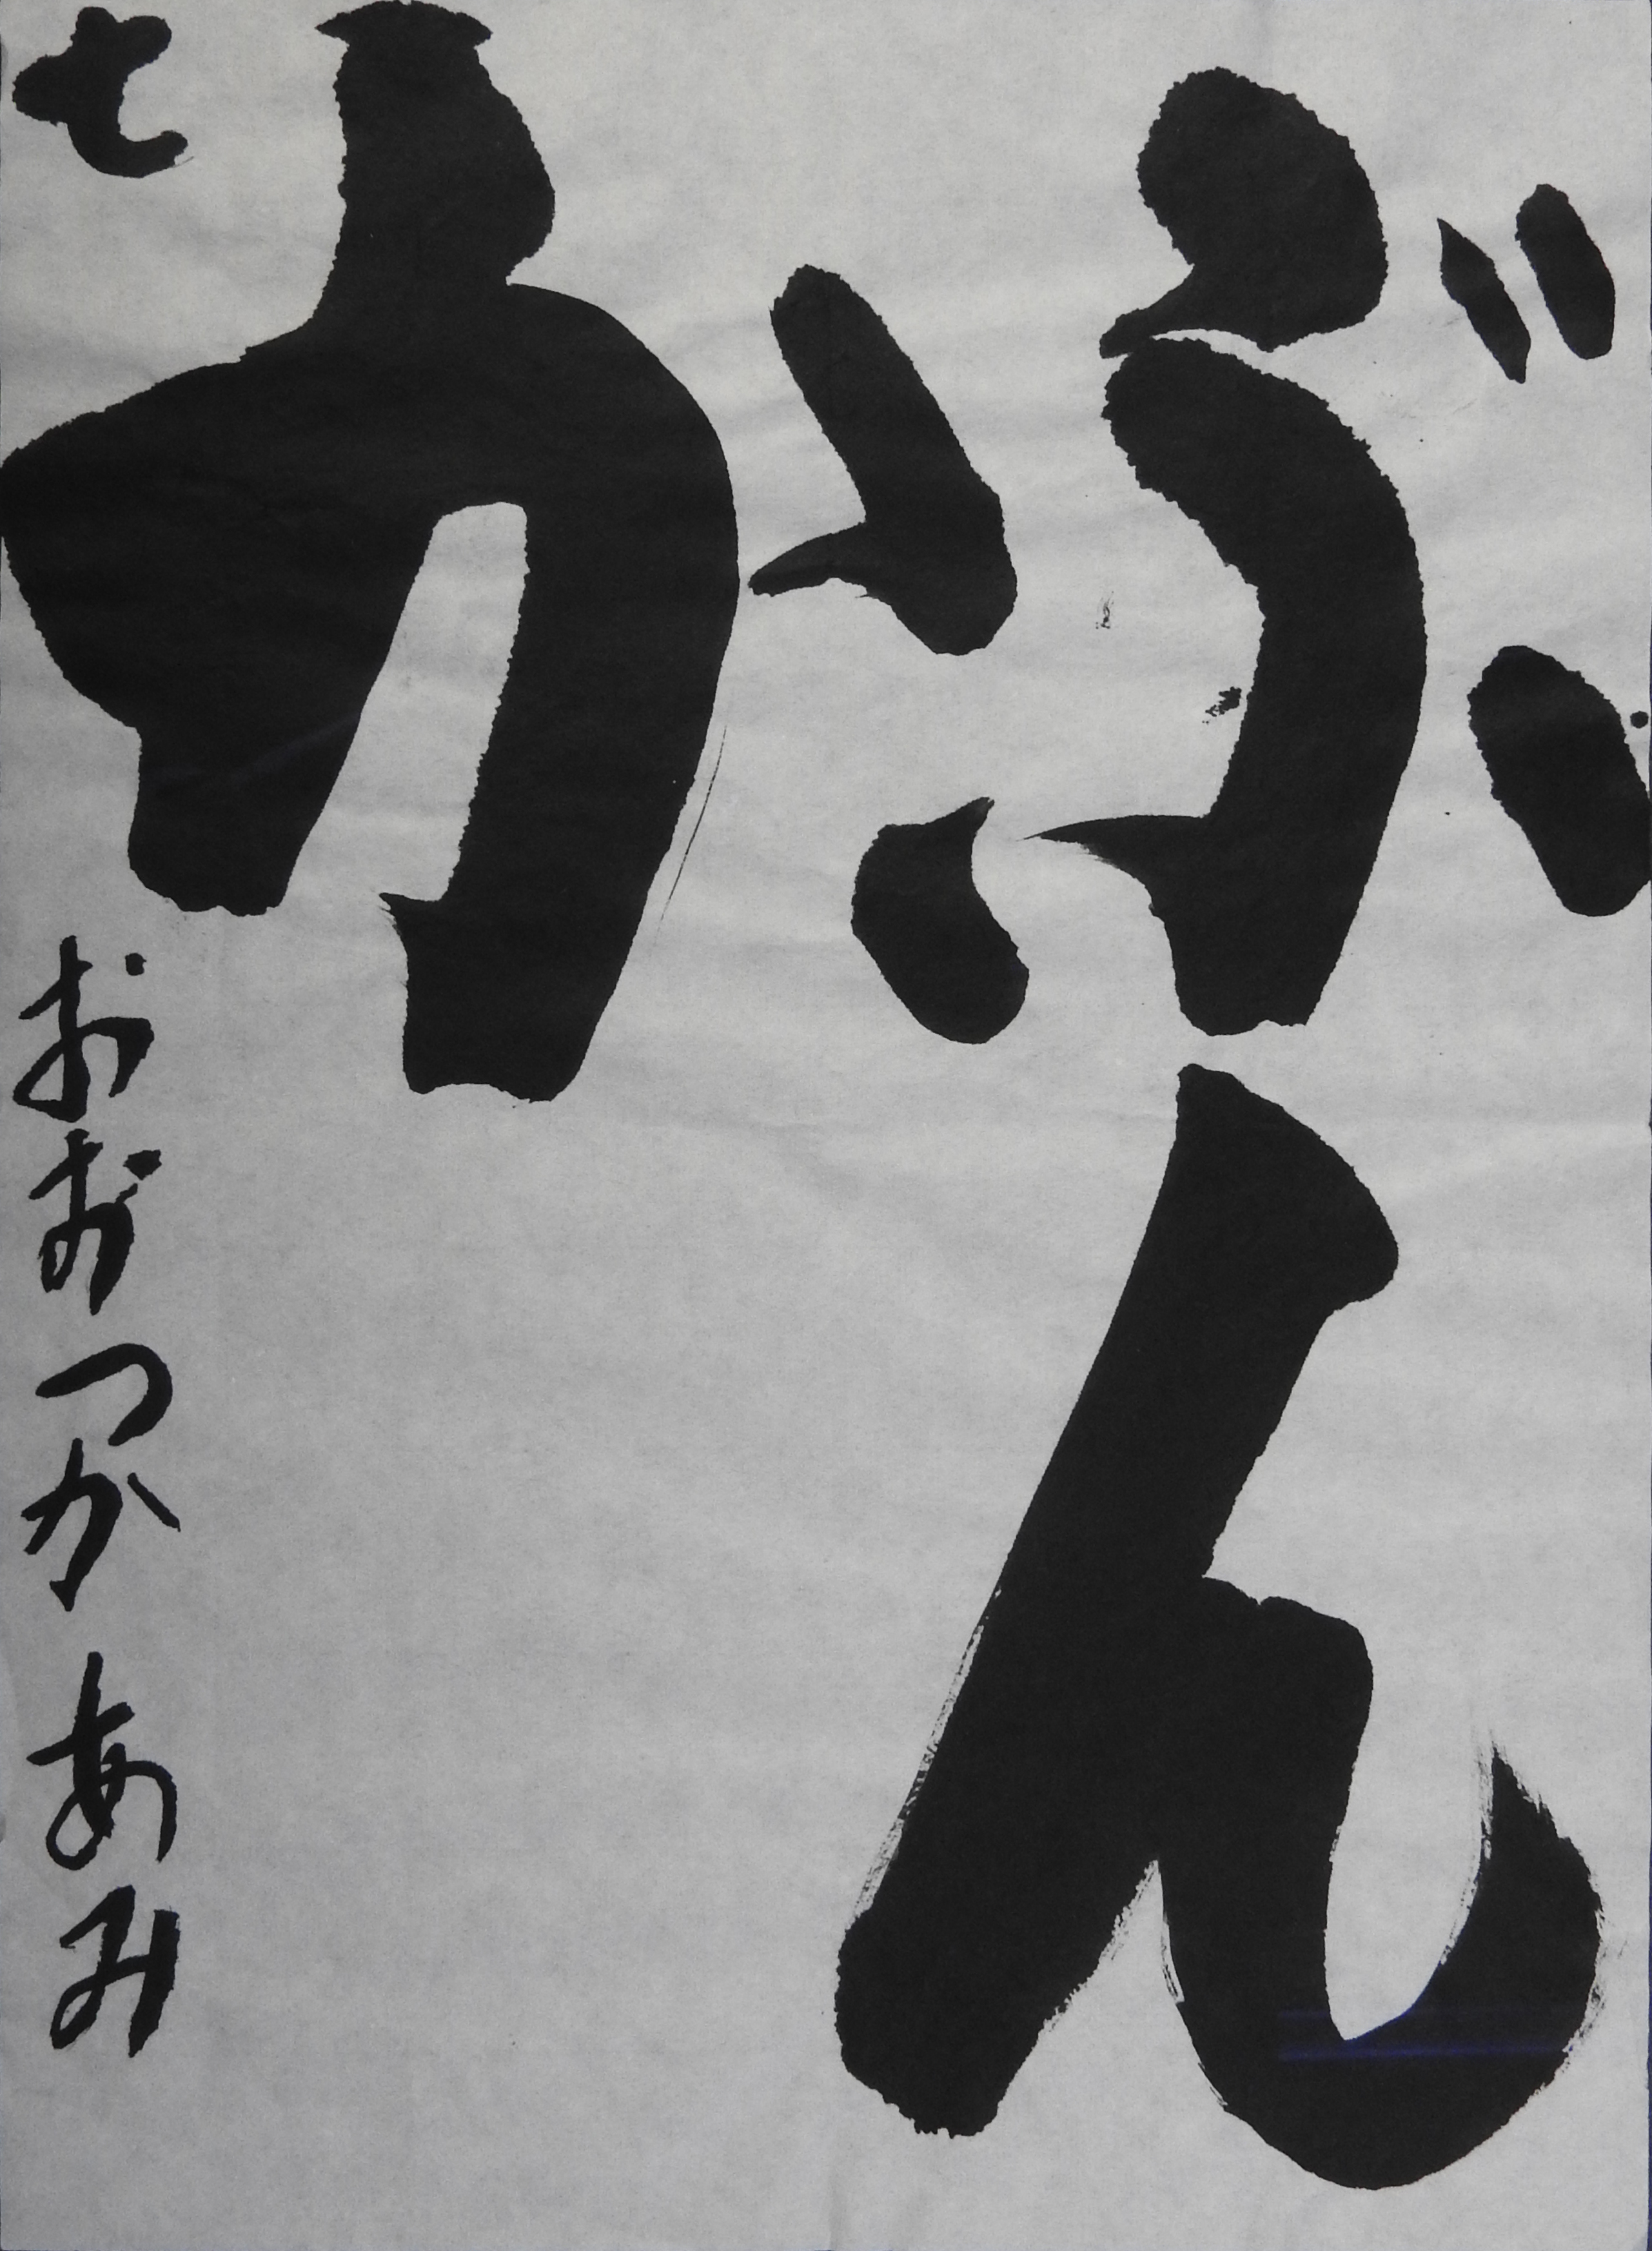 ぶん
か
七 おおつか あみ